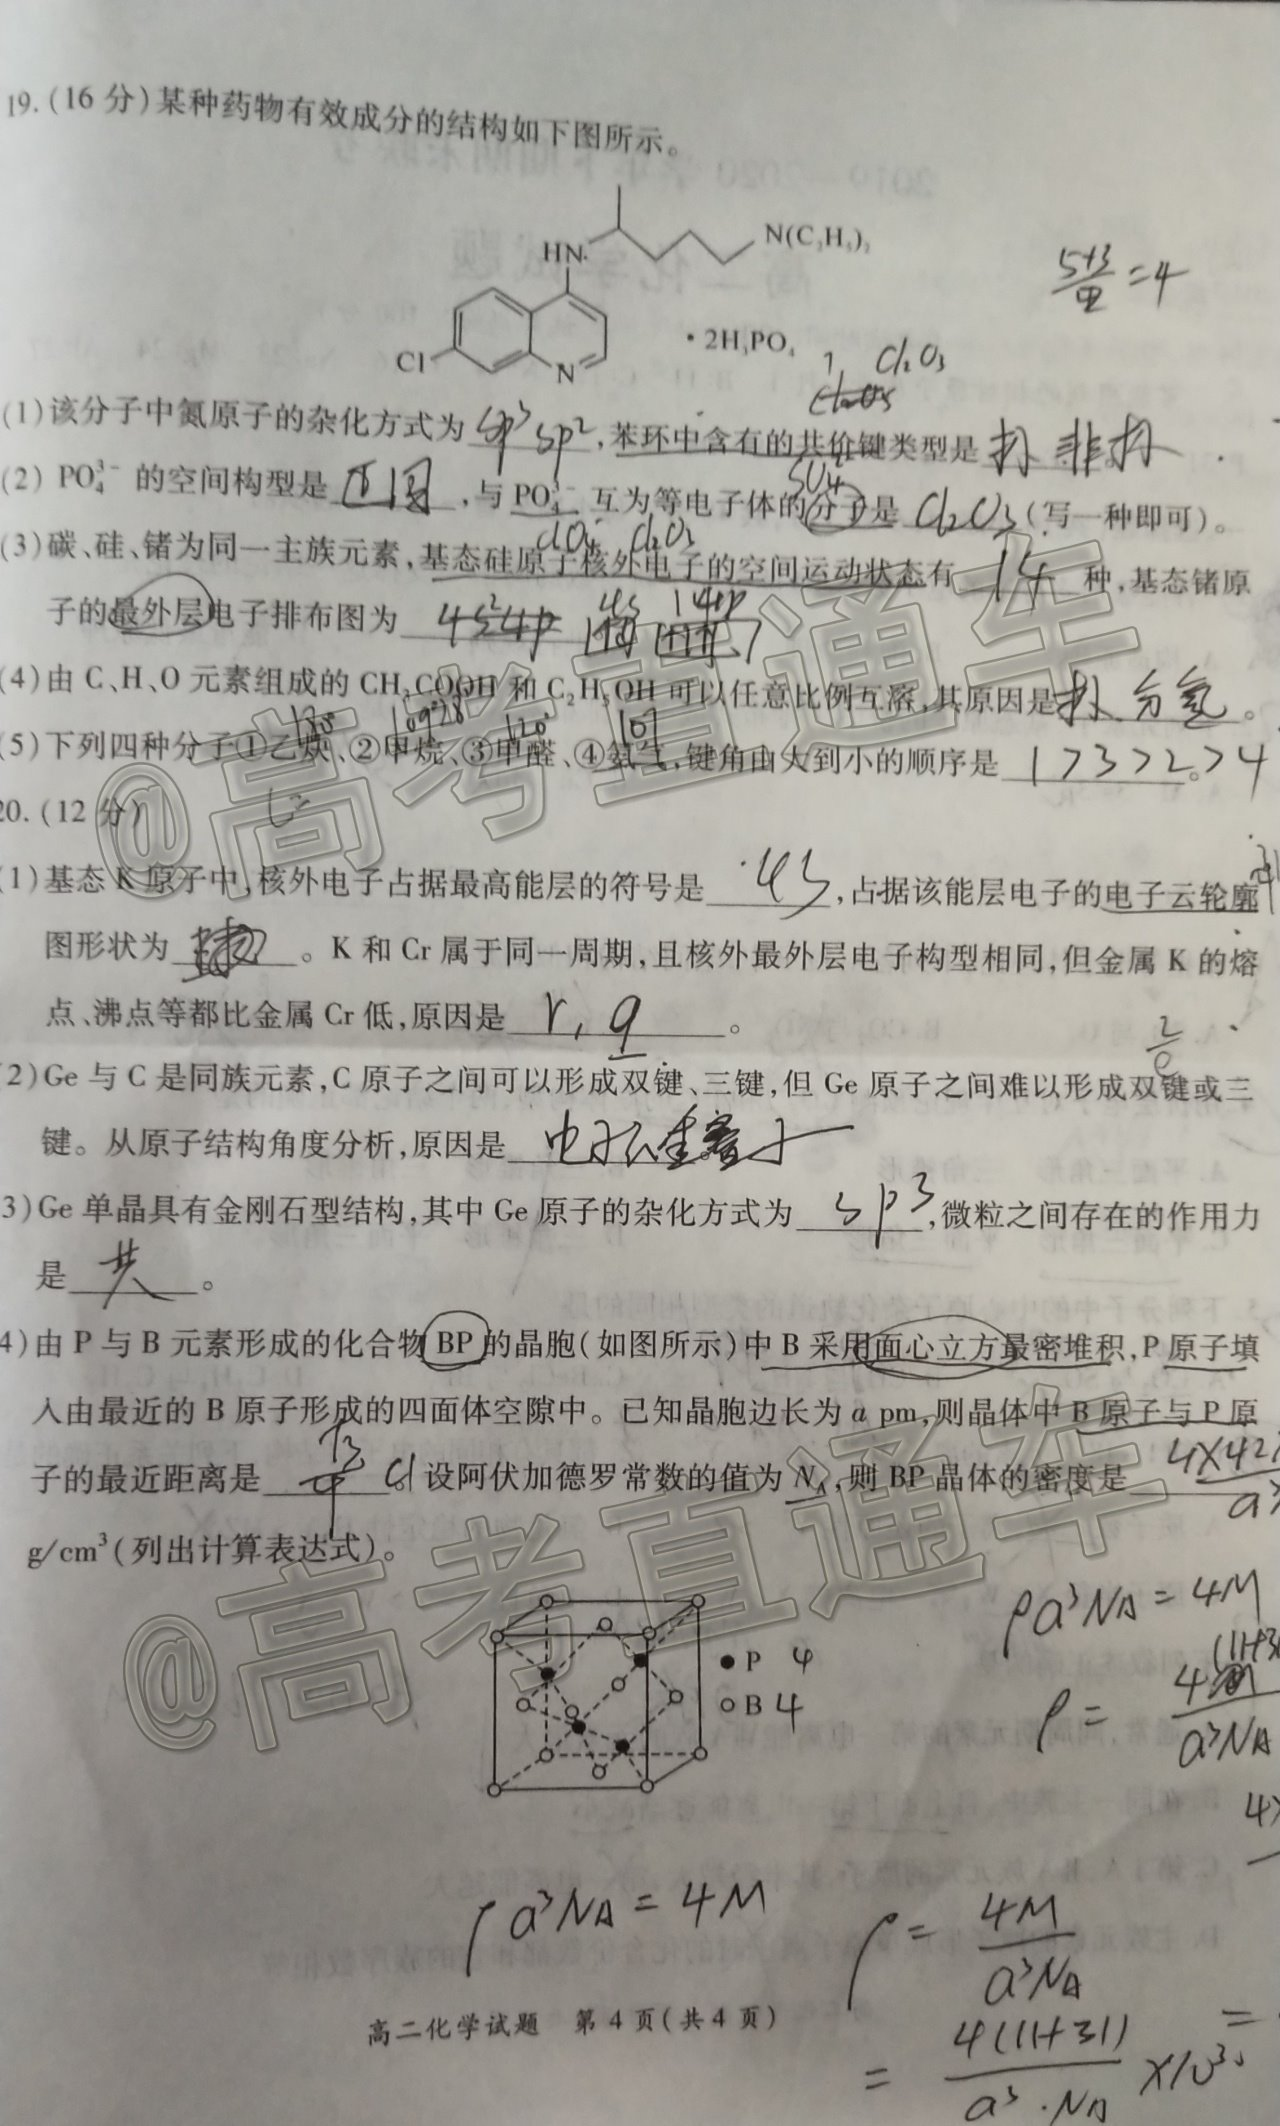 19.(16分)某种药物有效成分的结构如下图所示。
HN
N(C₂H₅)₂
Cl
N
·2H₃PO₄
5+3/2 =4
Cl₂O₃
(1)该分子中氮原子的杂化方式为 sp³ sp² ,苯环中含有的共价键类型是 非极
(2) PO₄³⁻ 的空间构型是 正四 ,与 PO₄³⁻ 互为等电子体的分子是 Cl₂O₃ (写一种即可)。
(3)碳、硅、锗为同一主族元素,基态硅原子核外电子的空间运动状态有 14 种,基态锗原
子的最外层电子排布图为 4s²4p
(4)由 C、H、O 元素组成的 CH₃COOH 和 C₂H₅OH 可以任意比例互溶,其原因是 分氢 。
180° 109°28′ 120° 107
(5)下列四种分子①乙炔、②甲烷、③甲醛、④氨气,键角由大到小的顺序是 1>3>2>4 。
20.(12分)
(1)基态 K 原子中,核外电子占据最高能层的符号是 4s ,占据该能层电子的电子云轮廓
图形状为 。K 和 Cr 属于同一周期,且核外最外层电子构型相同,但金属 K 的熔
点、沸点等都比金属 Cr 低,原因是 r,q 。
(2)Ge 与 C 是同族元素,C 原子之间可以形成双键、三键,但 Ge 原子之间难以形成双键或三
键。从原子结构角度分析,原因是 电子云 。
3)Ge 单晶具有金刚石型结构,其中 Ge 原子的杂化方式为 sp3 ,微粒之间存在的作用力
是 共 。
4)由 P 与 B 元素形成的化合物 BP 的晶胞(如图所示)中 B 采用面心立方最密堆积,P 原子填
入由最近的 B 原子形成的四面体空隙中。已知晶胞边长为 a pm,则晶体中 B 原子与 P 原
子的最近距离是 √3/4 a 。设阿伏加德罗常数的值为 N_A,则 BP 晶体的密度是
g/cm³(列出计算表达式)。
● P 4
○ B 4
ρa³NA = 4M
ρ = 4M/a³NA
ρa³NA = 4M
ρ = 4M/a³NA
= 4(11+31)/a³·NA ×10³⁰
高二化学试题 第 4 页(共 4 页)
@高考直通车
@高考直通车